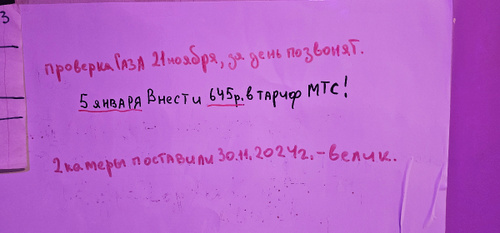 3
проверка ГАЗА 21 ноября, за день позвонят.
5 января Внести 645р. в тариф МТС!
2 камеры поставили 30.11.2024г. - велик.